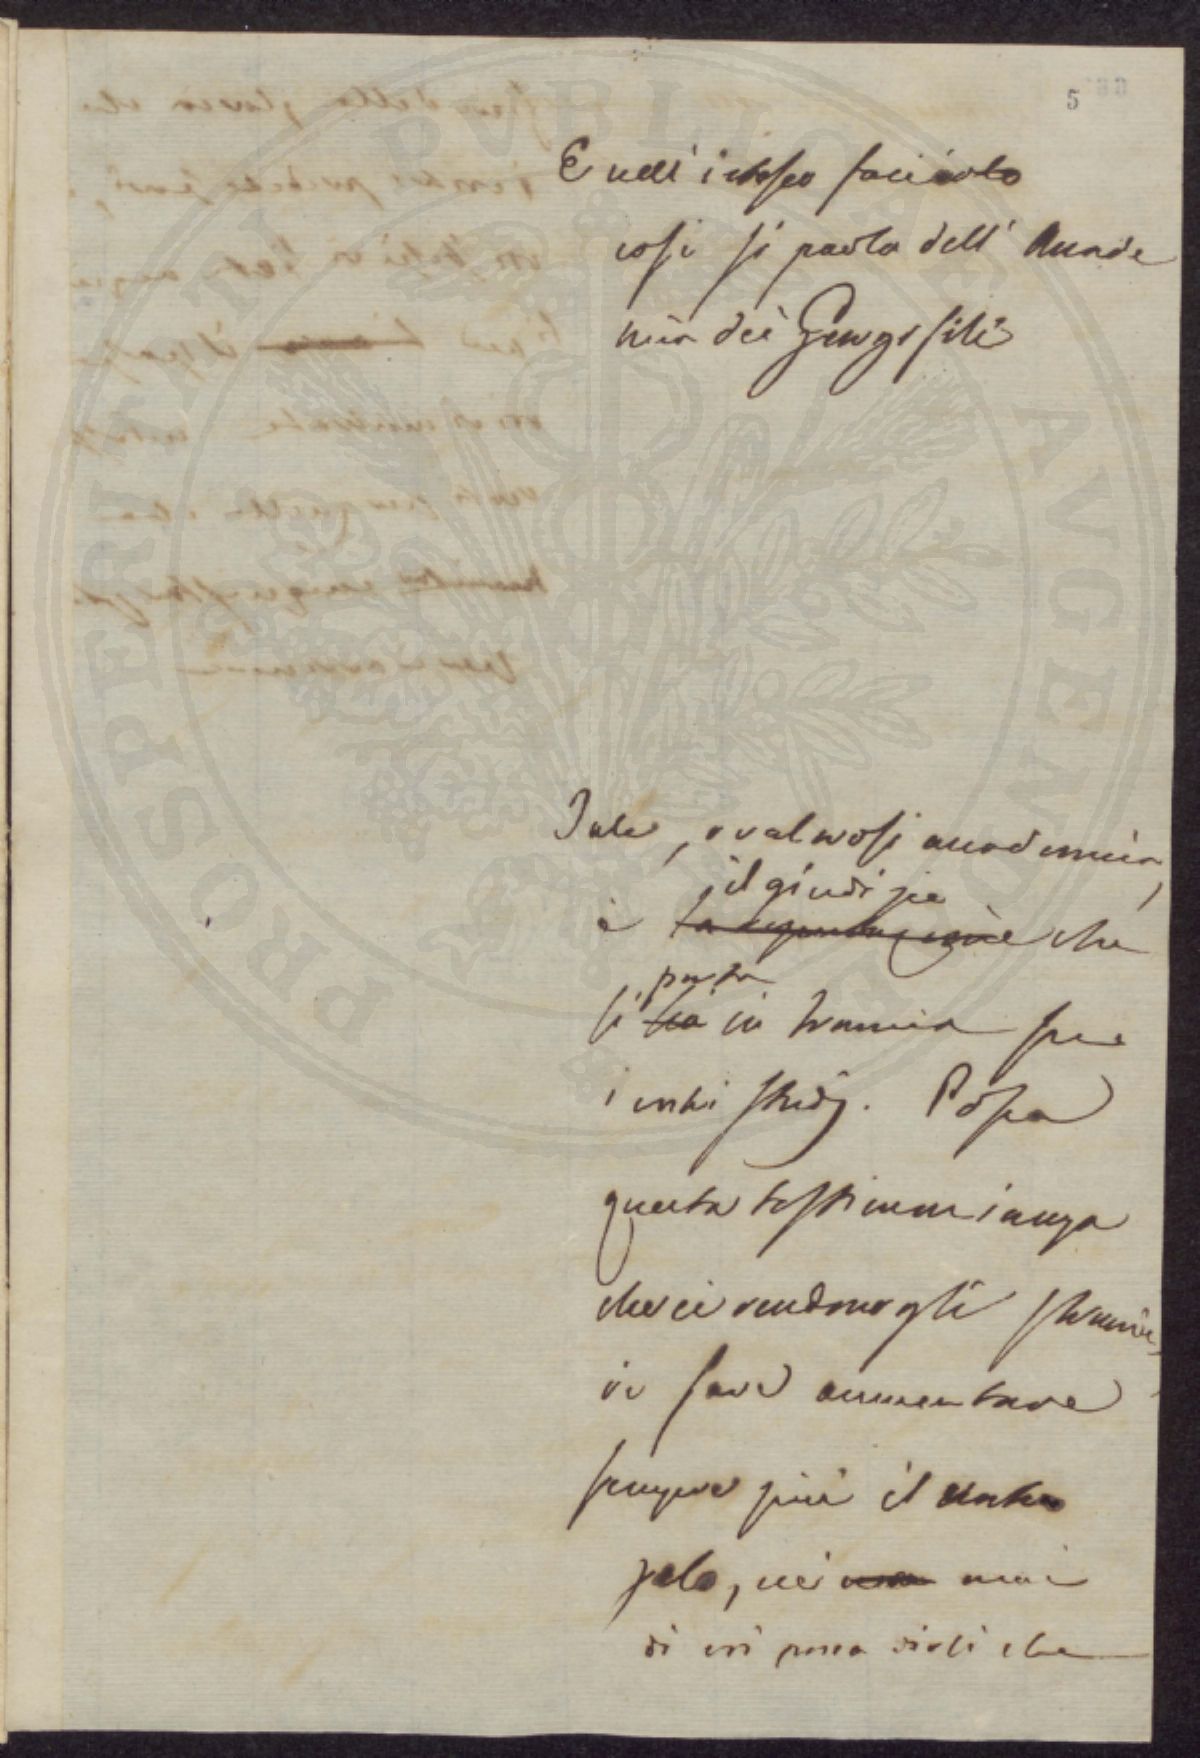 5
E nell'istesso fascicolo
così si parla dell'Accade
mia dei Georgofili
Tale, o valorosi accademici,
il giudizio
è la reputazione che
porta
si ha in Francia su
i vostri studj. Possa
questa testimonianza
che ci rendono gli stranie
ri fare aumentare
sempre più il vostro
zelo, nè mai
di voi possa dirsi che
PROSPERITATI PVBLICAE AVGENDAE